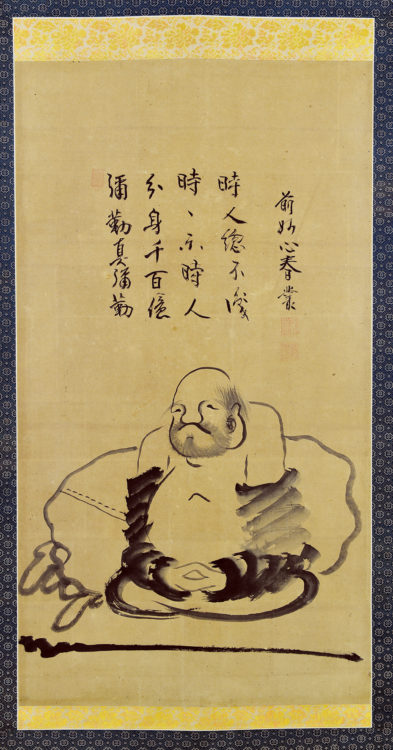 彌勒真彌勒
分身千百億
時〻示時人
時人總不識
前妙心春叢